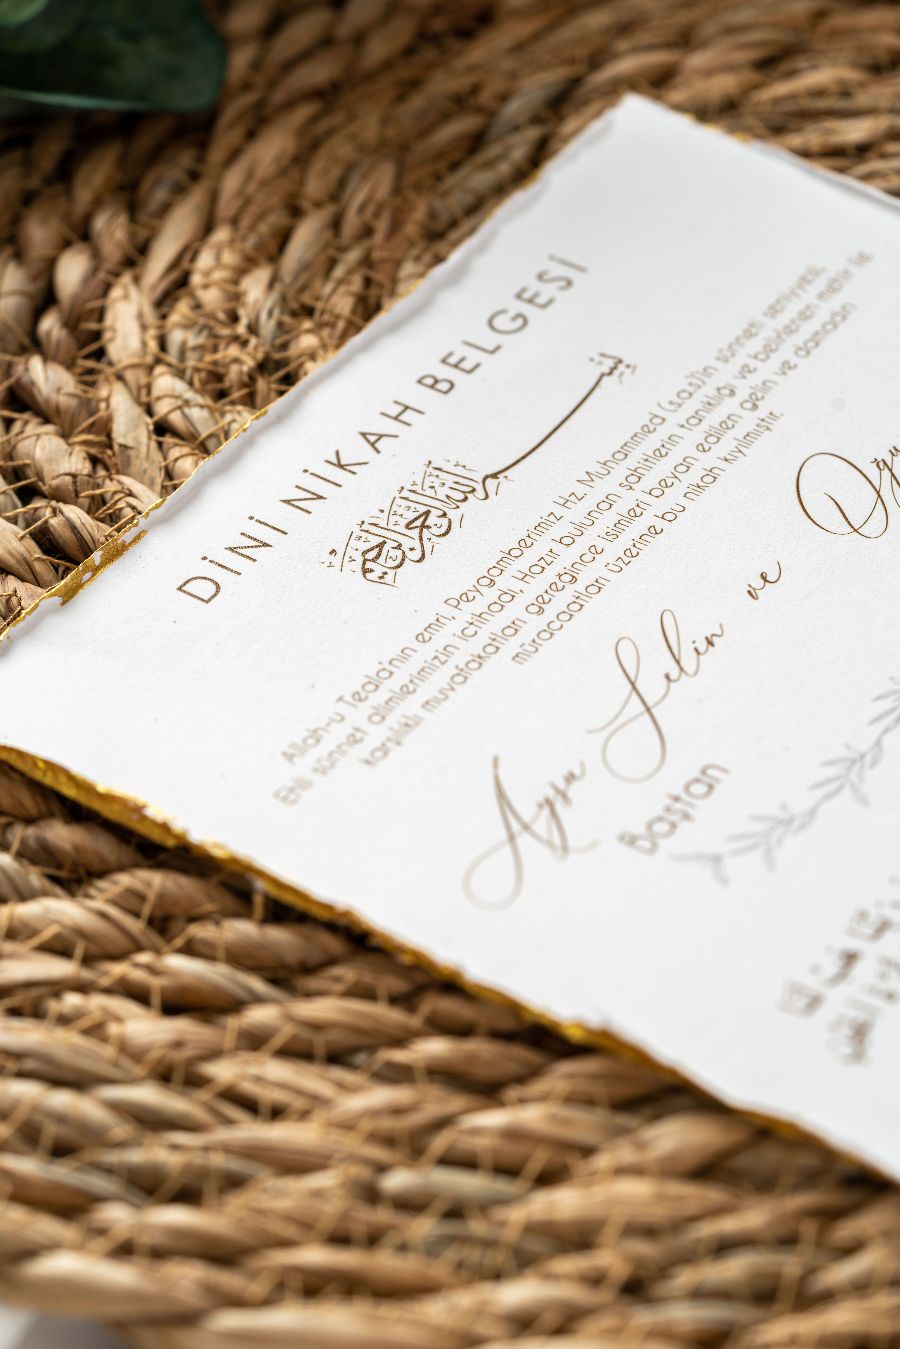 DİNİ NİKAH BELGESİ
﷽
Allah-u Teala'nın emri, Peygamberimiz Hz. Muhammed (s.a.s)'in sünneti seniyyesi,
Ehli sünnet alimlerimizin ictihadı, Hazır bulunan şahitlerin tanıklığı ve belirlenen mehir ile
karşılıklı muvafakatları gereğince isimleri beyan edilen gelin ve damadın
müracaatları üzerine bu nikah kıyılmıştır.
Ayşe Selin ve
Baştan